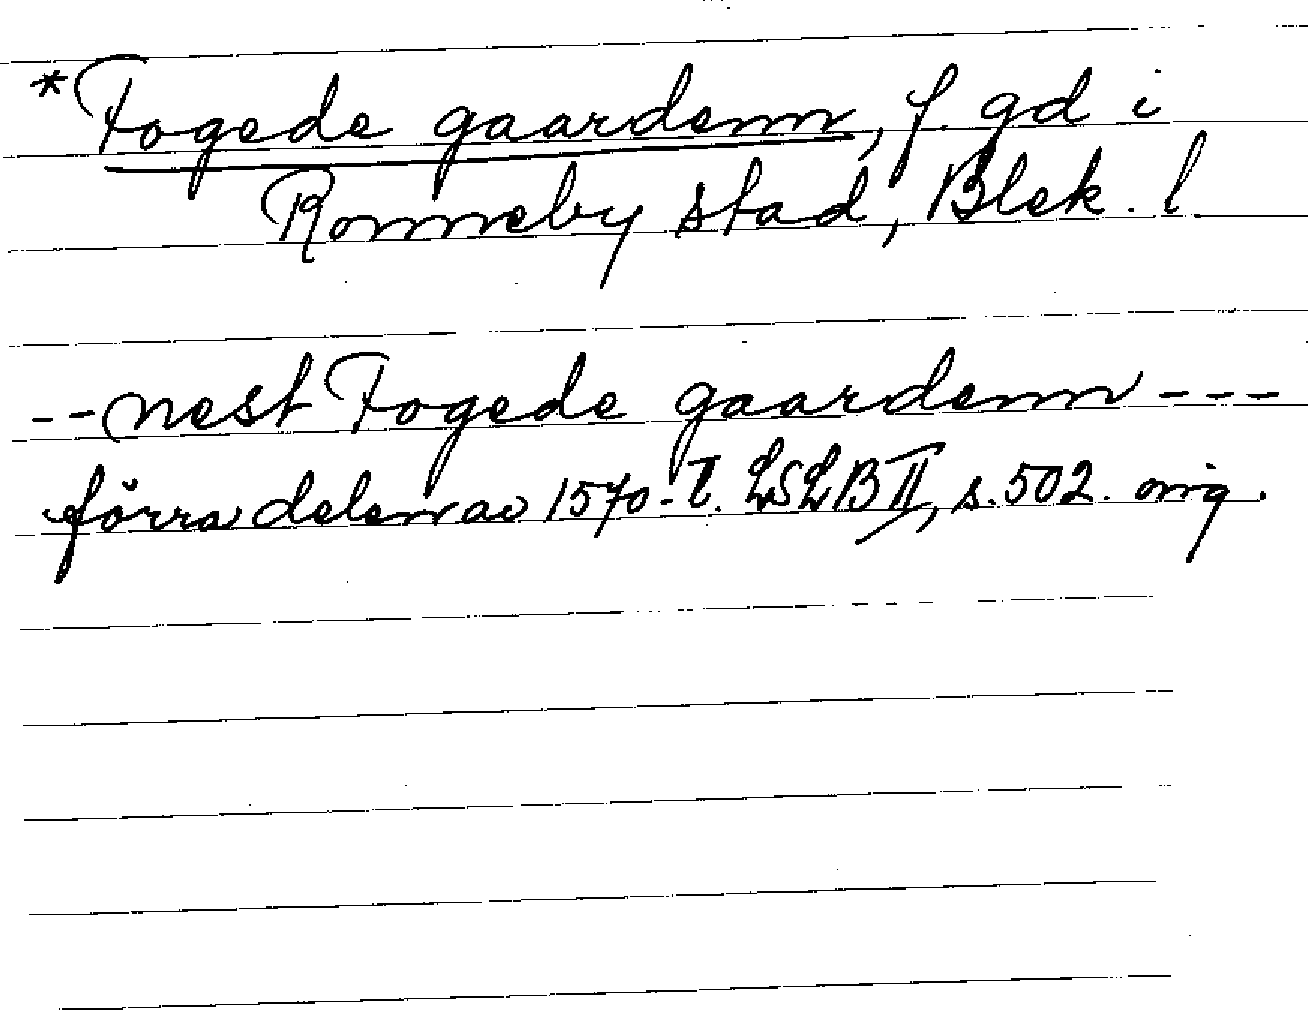 *Fogede gaardenn, f. gd i
Ronneby stad, Blek. l
--nest Fogede gaardenn---
förra delen av 1570-t. LSLB II, s. 502. orig.